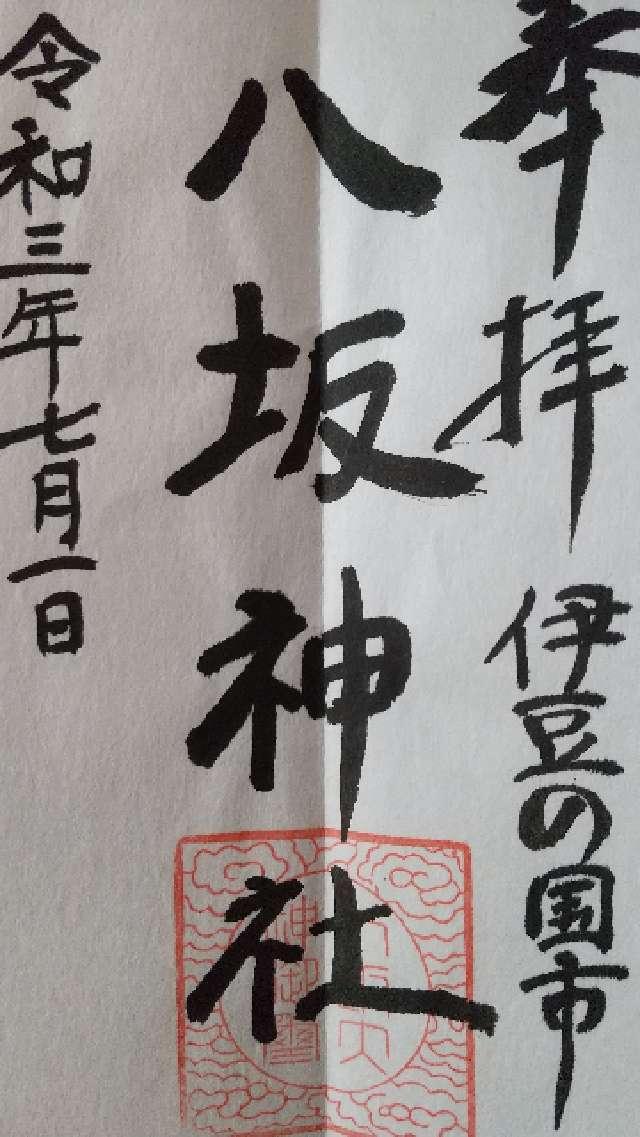 奉拝
伊豆の国市
八坂神社
令和三年七月一日